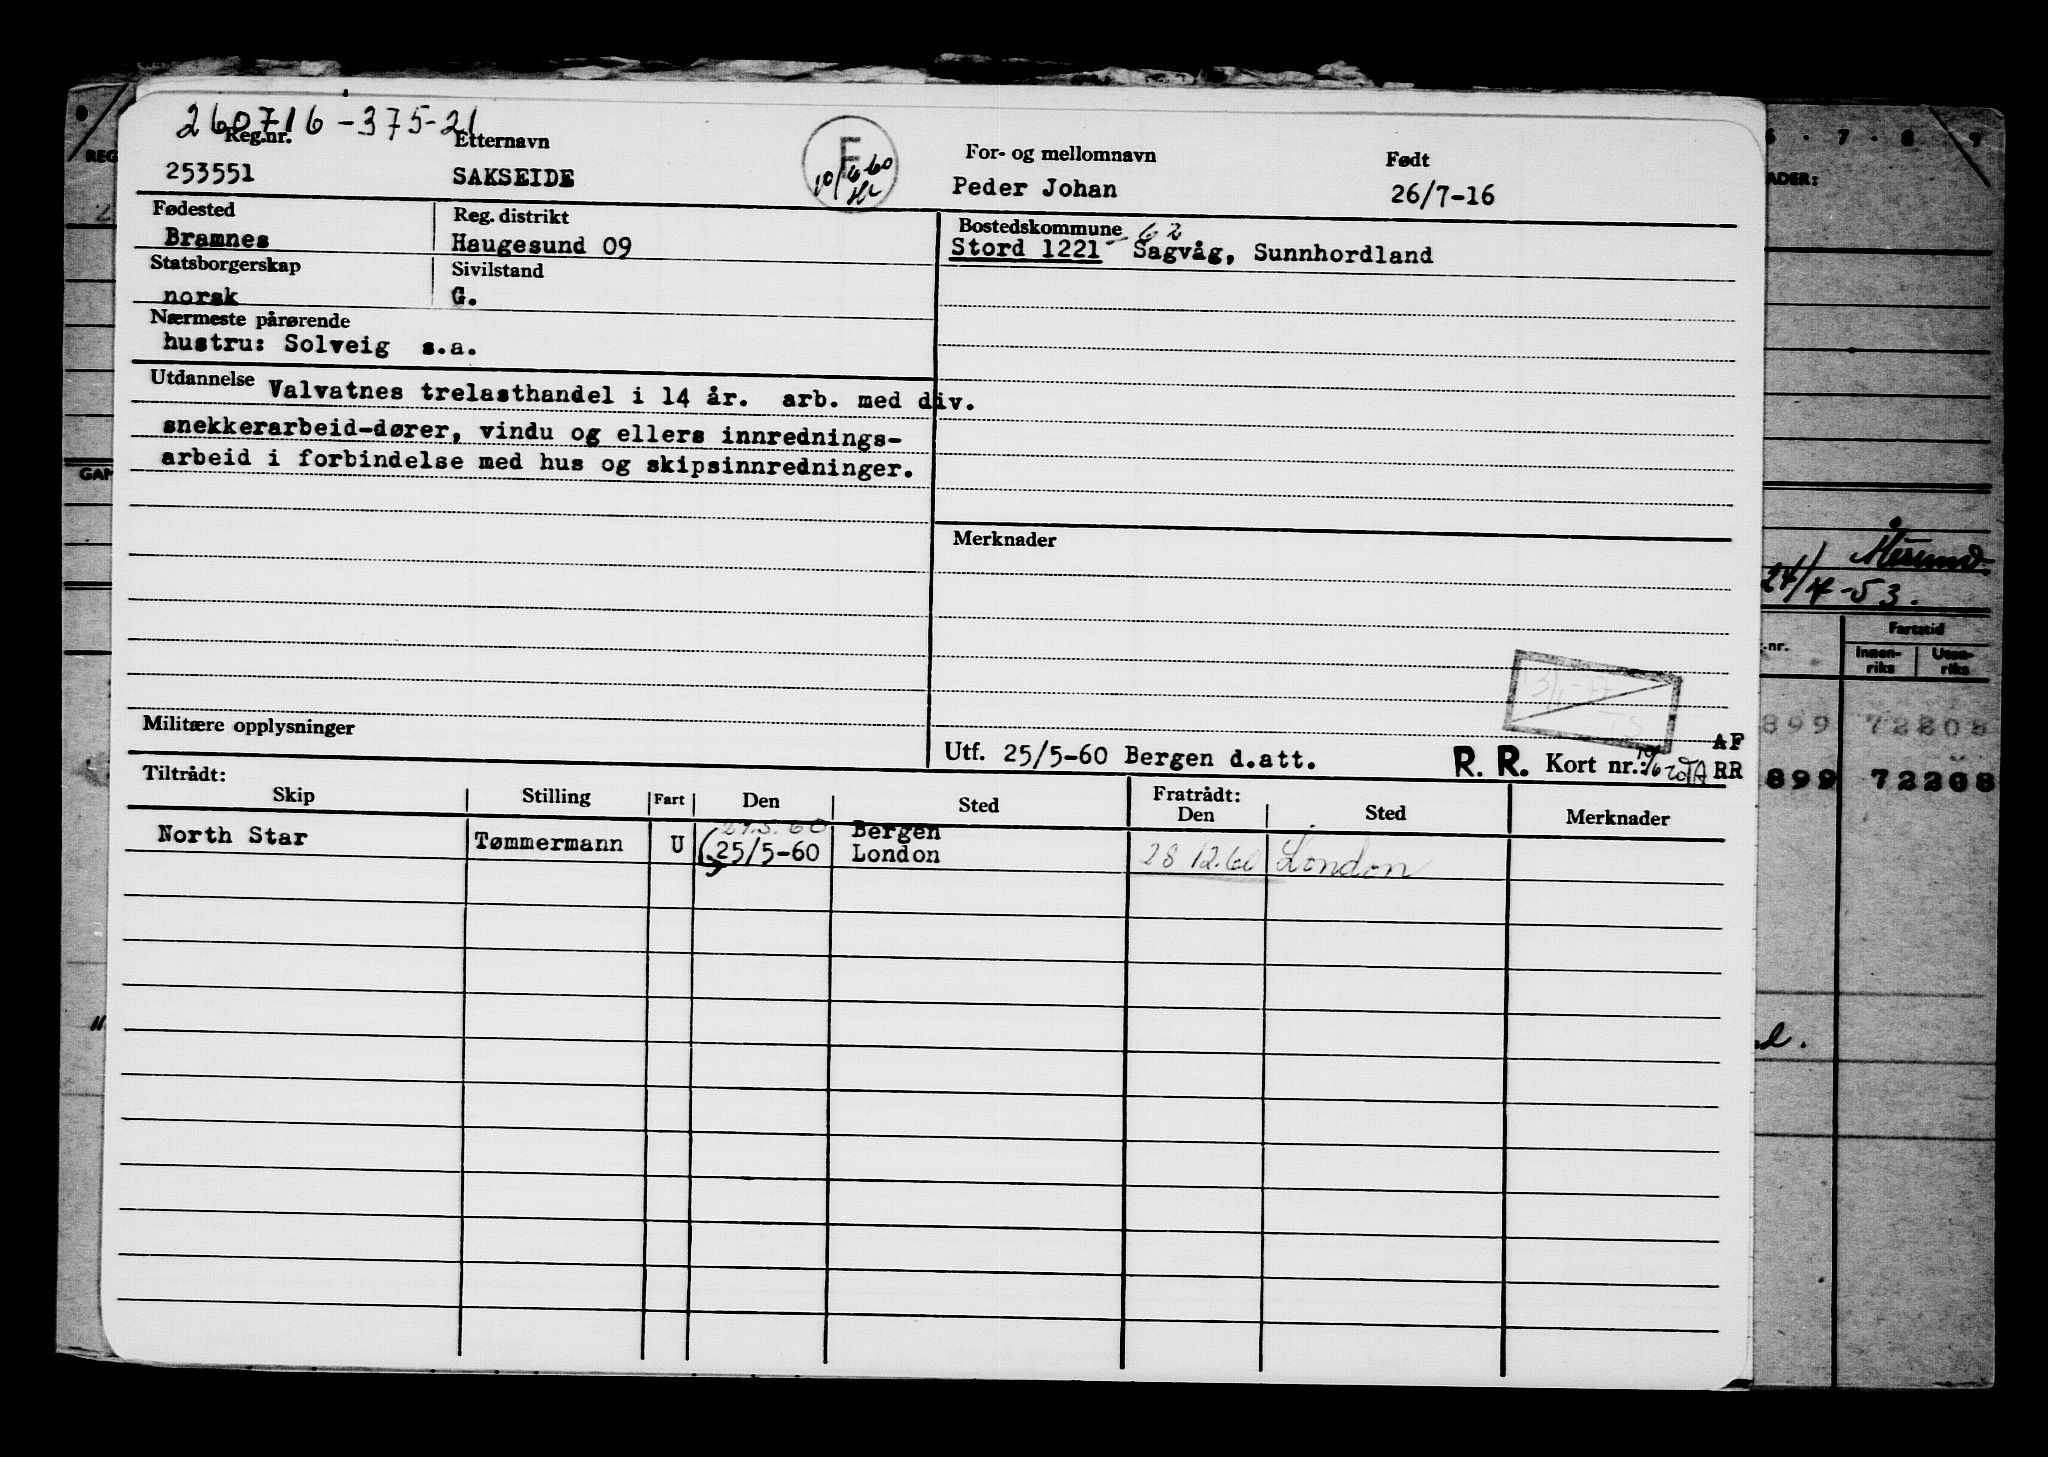 260716-375-21
Reg.nr. Etternavn For- og mellomnavn Født
253551 SAKSEIDE F 10/6-60 Peder Johan 26/7-16
Fødested Reg. distrikt Bostedskommune
Bramnes Haugesund 09 Stord 1221-62 Sagvåg, Sunnhordland
Statsborgerskap Sivilstand
norsk G.
Nærmeste pårørende
hustru: Solveig s.a.
Utdannelse Valvatnes trelasthandel i 14 år. arb. med div.
snekkerarbeid-dører, vindu og ellers innrednings-
arbeid i forbindelse med hus og skipsinnredninger.
Merknader
Militære opplysninger
Utf. 25/5-60 Bergen d.att. R. R. Kort nr.: AF
RR
Tiltrådt: Fratrådt:
Skip Stilling Fart Den Sted Den Sted Merknader
North Star Tømmermann U 27.5.60 Bergen
25/5-60 London 28 12.60 London
REG
GAM
6 . 7 . 8 . 9
ADER:
24/4-53.
.nr. Fartstid
Innen-riks Uten-riks
899 72208
899 72208